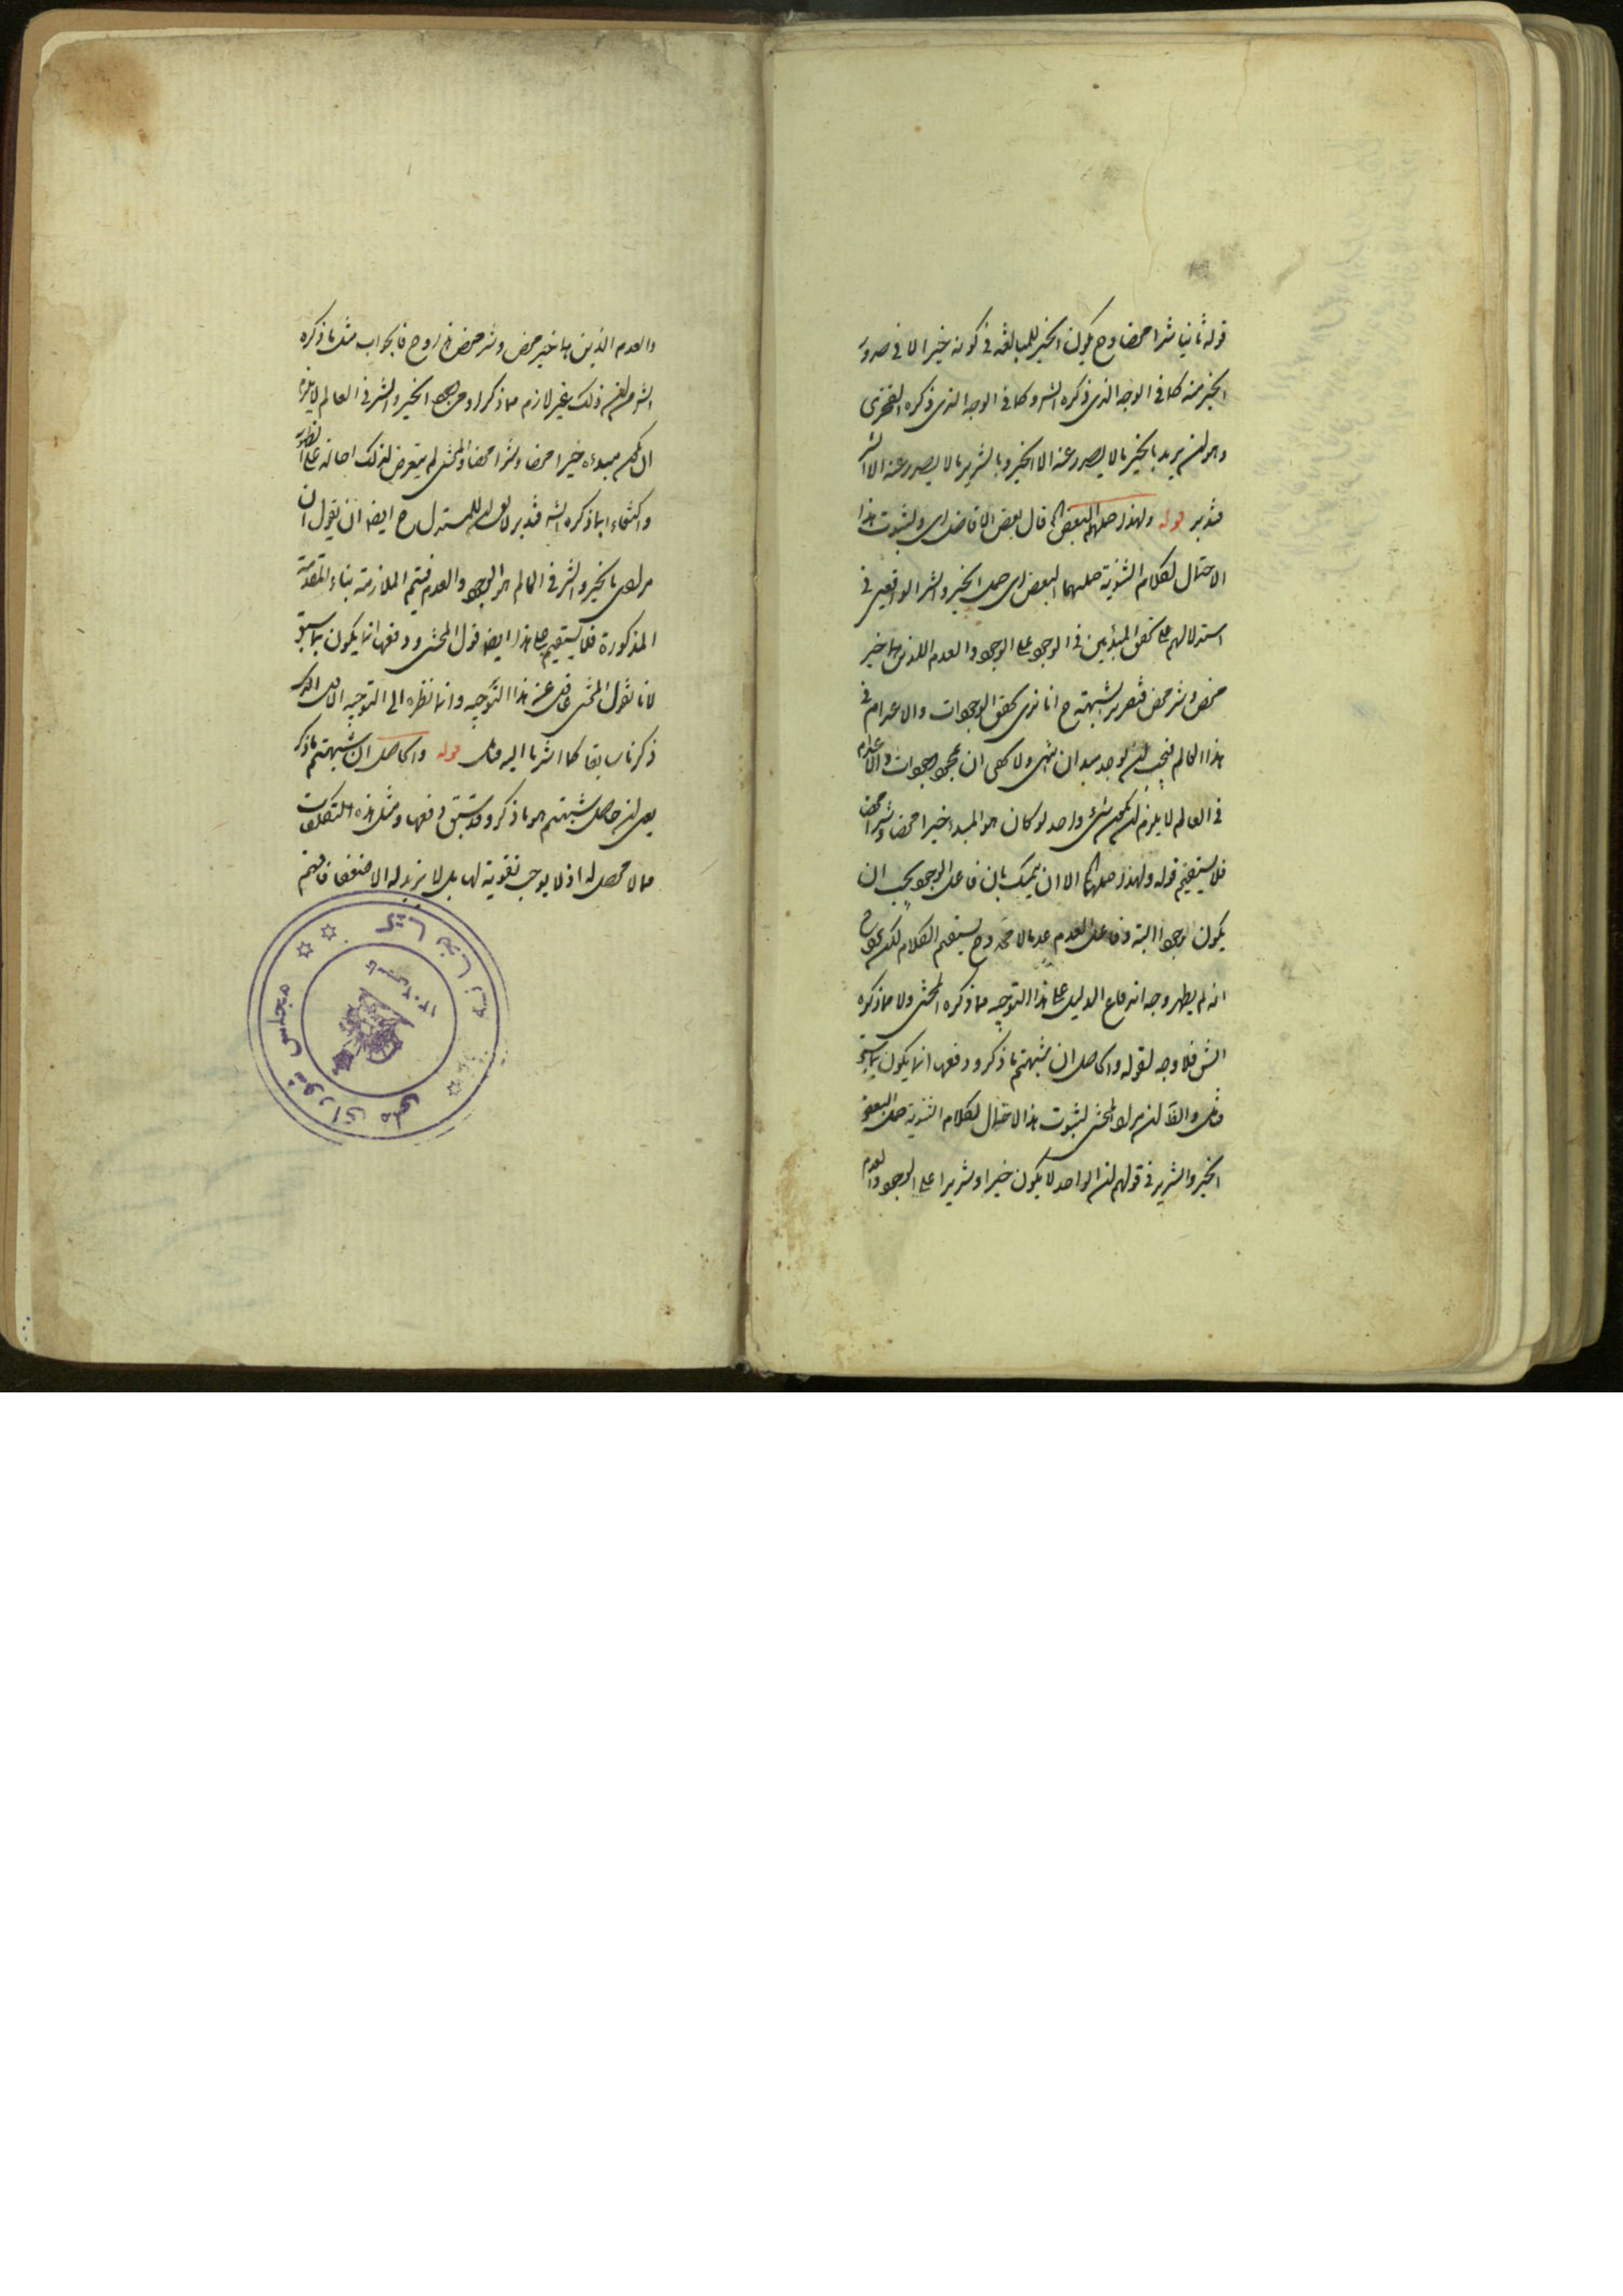 قوله ثانيا شرا محضا وح يكون الخير للمبالغة فى كونه خيرا لا فى صدور
الخير منه كما فى الوجه الذى ذكره الش وكما فى الوجه الذى ذكره الفخرى
وهو ان يريد بالخير ما لا يصدر عنه الا الخير وبالشرير ما لا يصدر عنه الا الشر
فتدبر قوله ولهذا حملهما البعض قال بعض الافاضل اى ولثبوت هذا
الاحتمال لكلام الثنوية حملهما البعض اى حمل الخير والشر الواقعين فى
استدلالهم على تحقق المبدئين فى الوجود على الوجود والعدم اللذين هما خير
محض وشر محض فتقرير شبهتهم ح انا نرى تحقق الوجودات والاعدام فى
هذا العالم فيجب ان يوجد مبدان انتهى ولا يخفى ان بمجرد وجودات والاعدام
فى العالم لا يلزم ان يكون شىء واحد لو كان هو المبدء خيرا محضا وشرا محضا
فلا يستقيم قوله ولهذا حملهما الا ان يتمسك بان فاعل الوجود يجب ان
يكون وجودا البتة وفاعل العدم عدما لا محة وح يستقيم الكلام لكن يتوجه ح
انه لم يظهر وجه اندفاع الدليل على هذا التوجيه مما ذكره المحشى ولا مما ذكره
الش فلا وجه لقوله والحاصل ان شبهتهم ما ذكر ودفعها انما يكون بما سبق
ان مراد المحشى لثبوت هذا الاحتمال لكلام الثنوية حمل البعض
الخير والشرير فى قولهم ان الواحد لا يكون خيرا وشريرا على الوجود والعدم
والعدم الذين هما خير محض وشر محض وح فالجواب مثل ما ذكره
الش من ان ذلك غير لازم مما ذكر اذ من وجود الخير والشر فى العالم لا يلزم
ان يكون مبدءه خيرا محضا وشرا محضا والمحشى لم يتعرض لذلك احالة على الظهور
واكتفاء بما ذكره الش فتدبر لا يقال للمستدل ح ايضا ان يقول ان
مرادى بالخير والشر فى العالم هو الوجود والعدم فيتم الملازمة بناء المقدمة
المذكورة فلا يستقيم على هذا ايضا قول المحشى ودفعها انما يكون بما سبق
لانا نقول المحشى غافل عن هذا التوجيه وانما نظره الى التوجيه الاول الذى
ذكرنا سابقا كما اشرنا اليه قوله والحاصل ان شبهتهم ما ذكر
يعنى ان حاصل شبهتهم هو ما ذكر وقد سبق دفعها ومثل هذه التكلفات
مما لا محصل له اذ لا يوجب تقوية لها بل لا يزيد له الا ضعفا فافهم
کتابخانه مجلس شورای ملی
۱۳۰۲